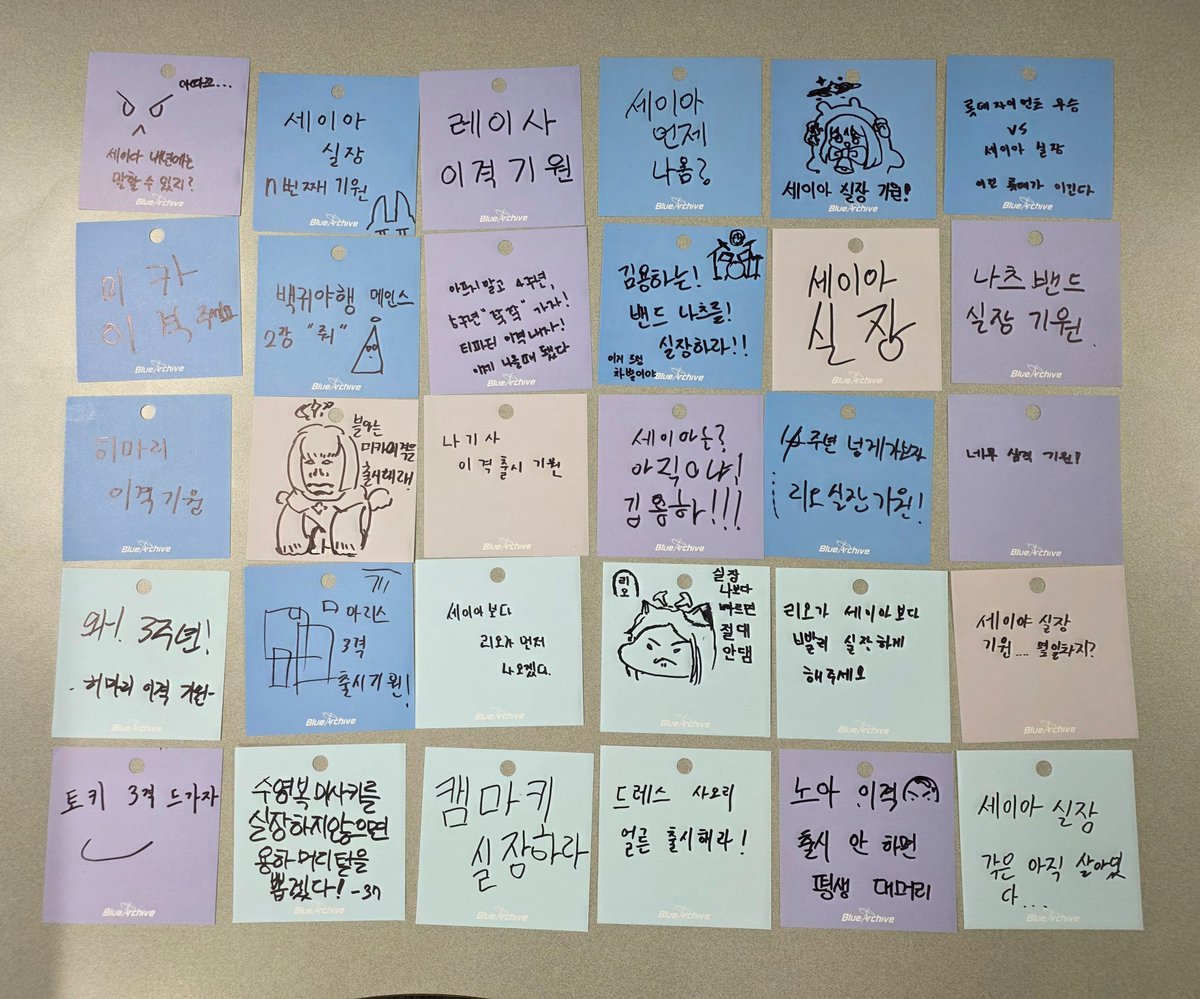 아따끄...
세이다 내년에는
말할 수 있지?
Blue Archive
세이아
실장
n번째 기원
레이사
이격 기원
Blue Archive
세이아
언제
나옴?
Blue Archive
세이아 실장 기원!
Blue Archive
롯데자이언츠 우승
vs
세이아 실장
이건 롯데가 이긴다
Blue Archive
미카
이격 주세요
Blue Archive
백귀야행 메인스
2장 "줘"
Blue Archive
아프지말고 4주년,
5주년 "쭉쭉" 가자!
티파티 이격내자!
이제 나올때 됐다
Blue Archive
김용하는!
밴드 나츠를!
실장하라!!
이거 드럼
차별이야
Blue Archive
세이아
실장
Blue Archive
나츠 밴드
실장 기원.
Blue Archive
히마리
이격기원
Blue Archive
블아는
미카이격을
출시해라!
나기사
이격출시 기원
Blue Archive
세이아는?
아직이냐!
김용하!!!
Blue Archive
주년 넘게가보자
리오실장기원!
Blue Archive
네루 삼격 기원!
Blue Archive
와! 3주년!
-히마리 이격 기원-
Blue Archive
아리스
3격
출시기원!
Blue Archive
세이아보다
리오가 먼저
나오겠다.
Blue Archive
리오
실장
나보다
빠르면
절대
안댐
Blue Archive
리오가 세이아보다
빨리 실장하게
해주세요
Blue Archive
세이아 실장
기원.... 몇일차지?
Blue Archive
토키 3격 드가자
Blue Archive
수영복 미사키를
실장하지않으면
용하 머리털을
뽑겠다!
Blue Archive
캠마키
실장하라
Blue Archive
드레스 사오리
얼른 출시해라!
Blue Archive
노아 이격
출시 안 하면
평생 대머리
Blue Archive
세이아 실장
각은 아직 살아있
다...
Blue Archive